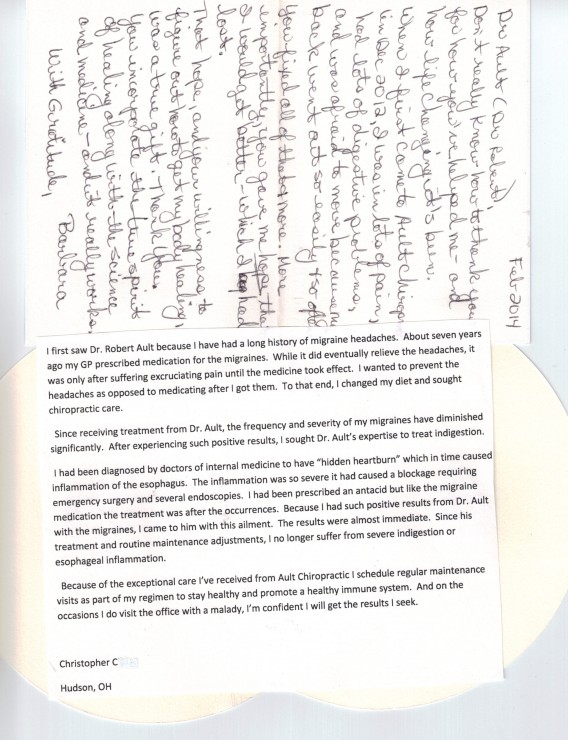 Feb 2014
Dr Ault (Dr. Robert),
Don't really know how to thank you
for how you've helped me - and
how life changing it's been.
When I first came to Ault Chiropr
in Dec 2012 I was in lots of pain,
had lots of digestive problems,
and was afraid to move because my
back went out so easily & so ofte
You fixed all of that & more. More
importantly, you gave me hope tha
I would get better - which I had
lost.
That hope, and your willingness to
figure out how to get my body healing,
was a true gift. Thank you.
You incorporate the true spirit
of healing along with the science
and medicine - and it really works.
With Gratitude,
Barbara
I first saw Dr. Robert Ault because I have had a long history of migraine headaches. About seven years
ago my GP prescribed medication for the migraines. While it did eventually relieve the headaches, it
was only after suffering excruciating pain until the medicine took effect. I wanted to prevent the
headaches as opposed to medicating after I got them. To that end, I changed my diet and sought
chiropractic care.
Since receiving treatment from Dr. Ault, the frequency and severity of my migraines have diminished
significantly. After experiencing such positive results, I sought Dr. Ault's expertise to treat indigestion.
I had been diagnosed by doctors of internal medicine to have “hidden heartburn” which in time caused
inflammation of the esophagus. The inflammation was so severe it had caused a blockage requiring
emergency surgery and several endoscopies. I had been prescribed an antacid but like the migraine
medication the treatment was after the occurrences. Because I had such positive results from Dr. Ault
with the migraines, I came to him with this ailment. The results were almost immediate. Since his
treatment and routine maintenance adjustments, I no longer suffer from severe indigestion or
esophageal inflammation.
Because of the exceptional care I've received from Ault Chiropractic I schedule regular maintenance
visits as part of my regimen to stay healthy and promote a healthy immune system. And on the
occasions I do visit the office with a malady, I'm confident I will get the results I seek.
Christopher C
Hudson, OH